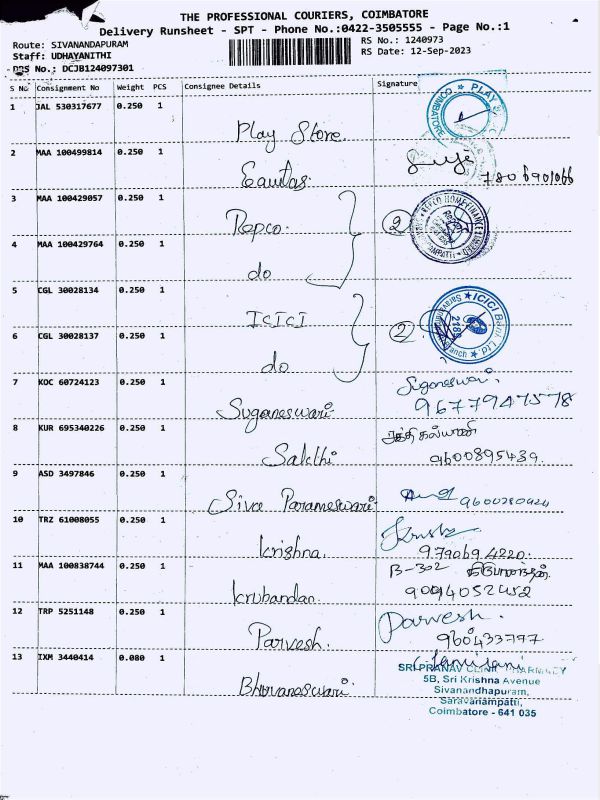 THE PROFESSIONAL COURIERS, COIMBATORE
Delivery Runsheet - SPT - Phone No.:0422-3505555 - Page No.:1
Route: SIVANANDAPURAM
RS No.: 1240973
Staff: UDHAYANITHI
RS Date: 12-Sep-2023
DRS No.: DCJB124097301
S No Consignment No Weight PCS Consignee Details Signature
1 JAL 530317677 0.250 1
PLAY
COIMBATORE
Play Store
2 MAA 100499814 0.250 1
Equitas
3 MAA 100429057 0.250 1
Repco.
2
REPCO HOME FINANCE LIMITED
4 MAA 100429764 0.250 1
do
5 CGL 30028134 0.250 1
ICICI
2
ICICI Bank Ltd.
Branch
6 CGL 30028137 0.250 1
do
7 KOC 60724123 0.250 1
Suganeswari
9677947578
Suganeswari
8 KUR 695340226 0.250 1
9600895439
Sakthi
9 ASD 3497846 0.250 1
Siva Parameswari
10 TRZ 61008055 0.250 1
9790694220
Krishna
11 MAA 100838744 0.250 1
B-302
9094052452
Krubandan
12 TRP 5251148 0.250 1
Parvesh
Parvesh
13 IXM 3440414 0.080 1
SRI PRANAV CLINIC PHARMACY
5B, Sri Krishna Avenue
Sivanandhapuram,
Saravanampatti,
Coimbatore - 641 035
Bhuvaneswari